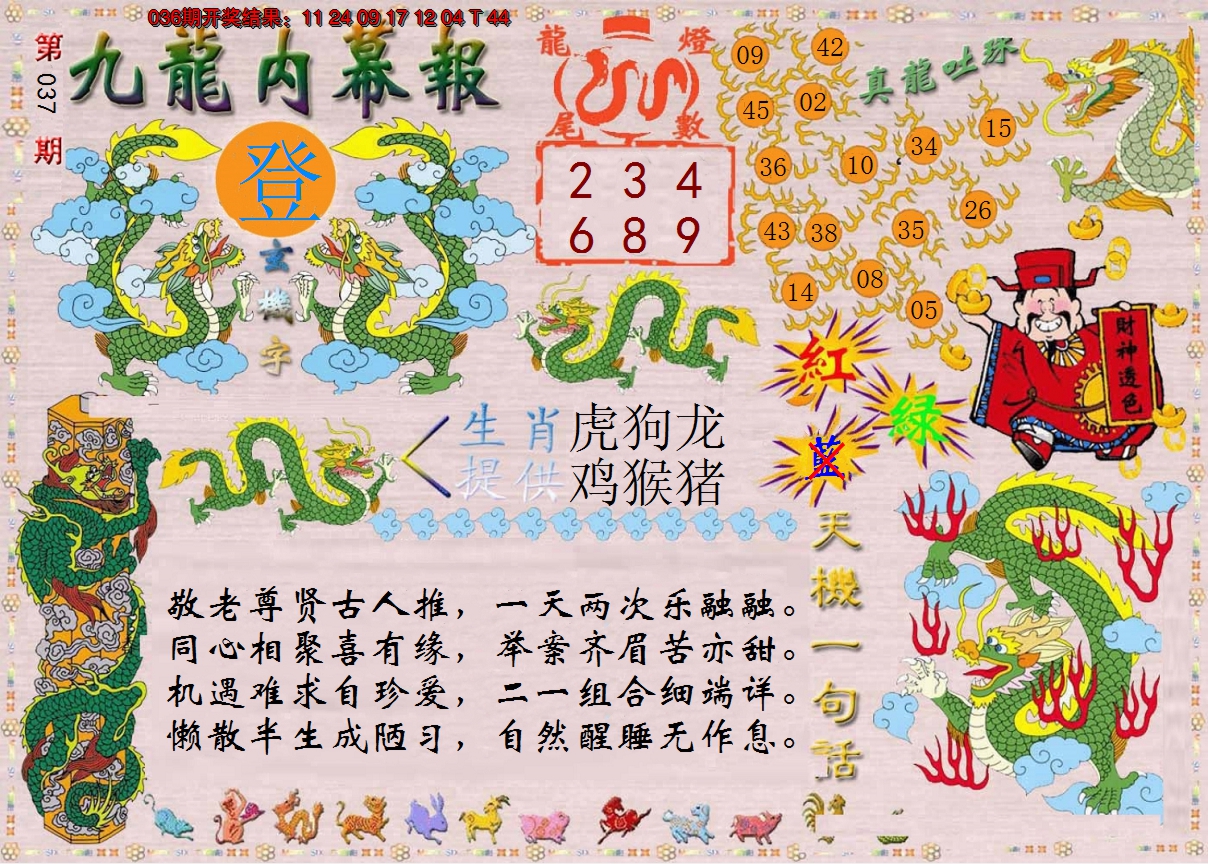 036期开奖结果：11 24 09 17 12 04 T 44
第037期
九龍内幕報
登
玄機字
龍燈尾數
2 3 4
6 8 9
真龍吐珠
09 42
45 02
36 10 34 15
43 38 35 26
14 08 05
紅
綠
藍
財神透色
生肖提供
虎狗龙
鸡猴猪
天機一句話
敬老尊贤古人推，一天两次乐融融。
同心相聚喜有缘，举案齐眉苦亦甜。
机遇难求自珍爱，二一组合细端详。
懒散半生成陋习，自然醒睡无作息。